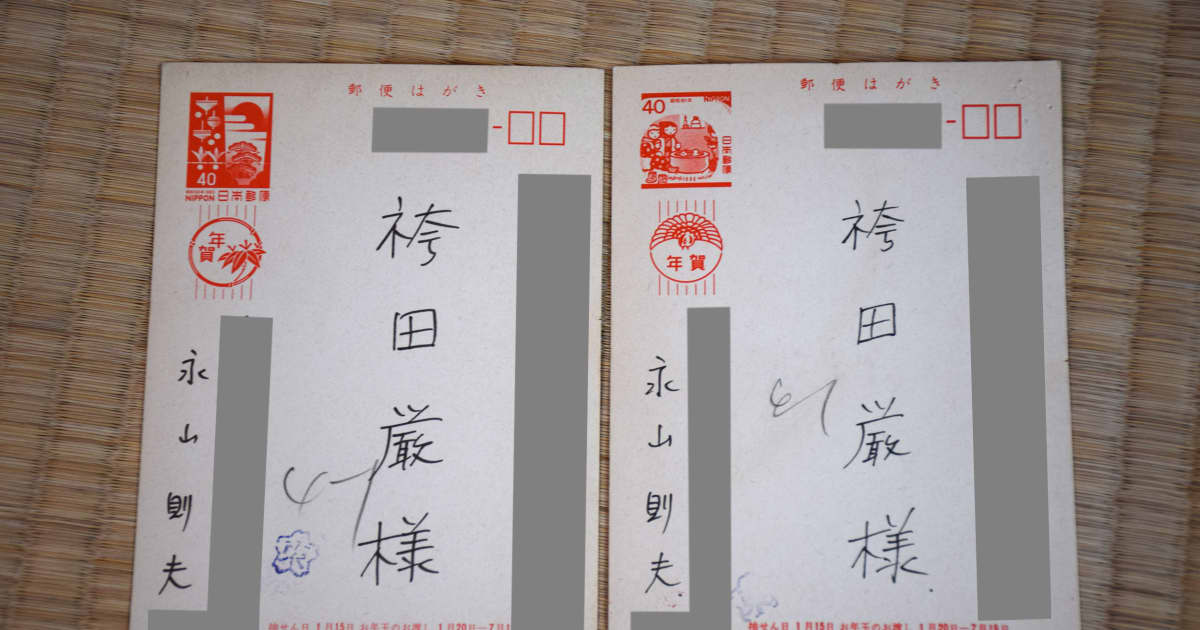 郵便はがき
40
NIPPON 日本郵便
年賀
袴田厳様
永山則夫
抽せん日 1月15日 お年玉のお渡し 1月20日-7月1
郵便はがき
40
NIPPON
日本郵便
年賀
袴田厳様
永山則夫
抽せん日 1月15日 お年玉のお渡し 1月20日-7月19日